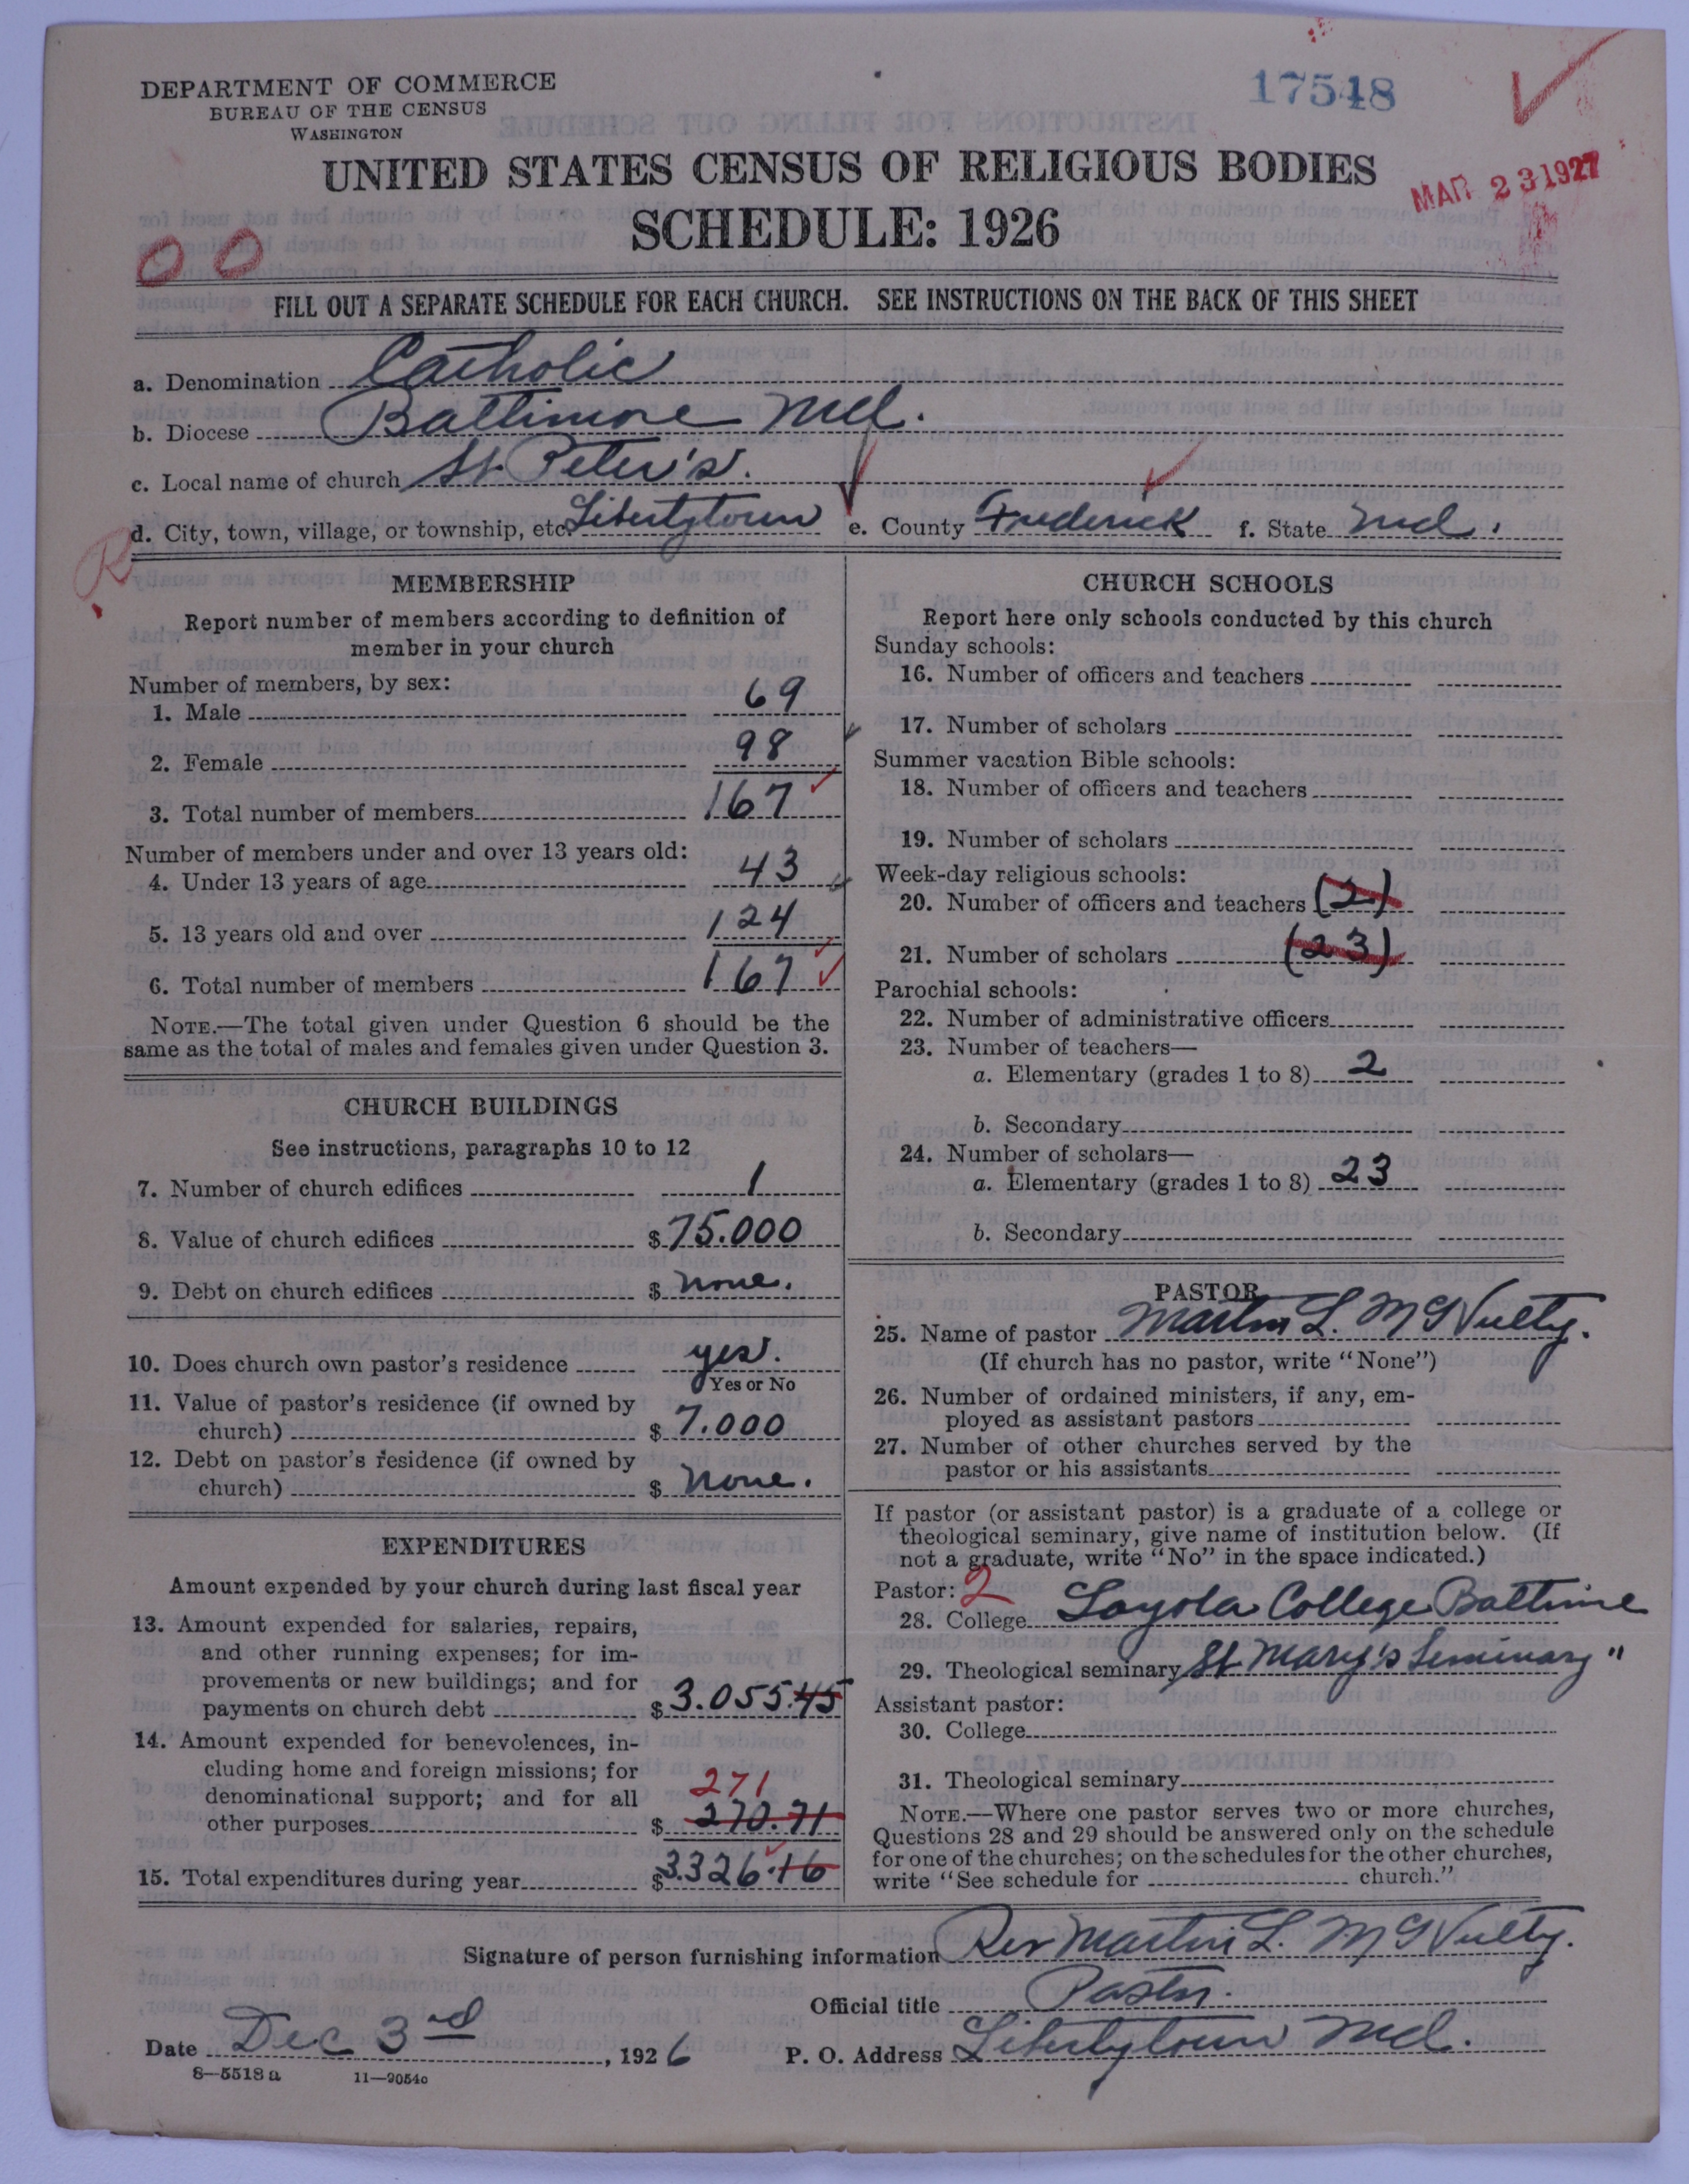 17548
DEPARTMENT OF COMMERCE
BUREAU OF THE CENSUS
WASHINGTON
UNITED STATES CENSUS OF RELIGIOUS BODIES
MAR 23 1927
SCHEDULE: 1926
00
FILL OUT A SEPARATE SCHEDULE FOR EACH CHURCH. SEE INSTRUCTIONS ON THE BACK OF THIS SHEET
a. Denomination Catholic
b. Diocese Baltimore Md.
c. Local name of church St. Peter's.
d. City, town, village, or township, etc. Libertytown e. County Frederick f. State Md.
R
MEMBERSHIP
Report number of members according to definition of
member in your church
Number of members, by sex:
1. Male 69
2. Female 98
3. Total number of members 167
Number of members under and over 13 years old:
4. Under 13 years of age 43
5. 13 years old and over 124
6. Total number of members 167
NOTE.—The total given under Question 6 should be the
same as the total of males and females given under Question 3.
CHURCH BUILDINGS
See instructions, paragraphs 10 to 12
7. Number of church edifices 1
8. Value of church edifices $ 75.000
9. Debt on church edifices $ none.
10. Does church own pastor's residence yes.
Yes or No
11. Value of pastor's residence (if owned by
church) $ 7.000
12. Debt on pastor's residence (if owned by
church) $ none.
EXPENDITURES
Amount expended by your church during last fiscal year
13. Amount expended for salaries, repairs,
and other running expenses; for im-
provements or new buildings; and for
payments on church debt $ 3.055.45
14. Amount expended for benevolences, in-
cluding home and foreign missions; for
denominational support; and for all 271
other purposes $ 270.71
15. Total expenditures during year $ 3.326.16
CHURCH SCHOOLS
Report here only schools conducted by this church
Sunday schools:
16. Number of officers and teachers
17. Number of scholars
Summer vacation Bible schools:
18. Number of officers and teachers
19. Number of scholars
Week-day religious schools:
20. Number of officers and teachers (2)
21. Number of scholars (23)
Parochial schools:
22. Number of administrative officers
23. Number of teachers—
a. Elementary (grades 1 to 8) 2
b. Secondary
24. Number of scholars—
a. Elementary (grades 1 to 8) 23
b. Secondary
PASTOR
25. Name of pastor Martin L. McNulty.
(If church has no pastor, write "None")
26. Number of ordained ministers, if any, em-
ployed as assistant pastors
27. Number of other churches served by the
pastor or his assistants
If pastor (or assistant pastor) is a graduate of a college or
theological seminary, give name of institution below. (If
not a graduate, write "No" in the space indicated.)
Pastor: 2
28. College Loyola College Baltimore
29. Theological seminary St Mary's Seminary "
Assistant pastor:
30. College
31. Theological seminary
NOTE.—Where one pastor serves two or more churches,
Questions 28 and 29 should be answered only on the schedule
for one of the churches; on the schedules for the other churches,
write "See schedule for church."
Signature of person furnishing information Rev Martin L. McNulty.
Official title Pastor.
Date Dec 3rd, 1926 P. O. Address Libertytown Md.
8—5518a 11—9054c